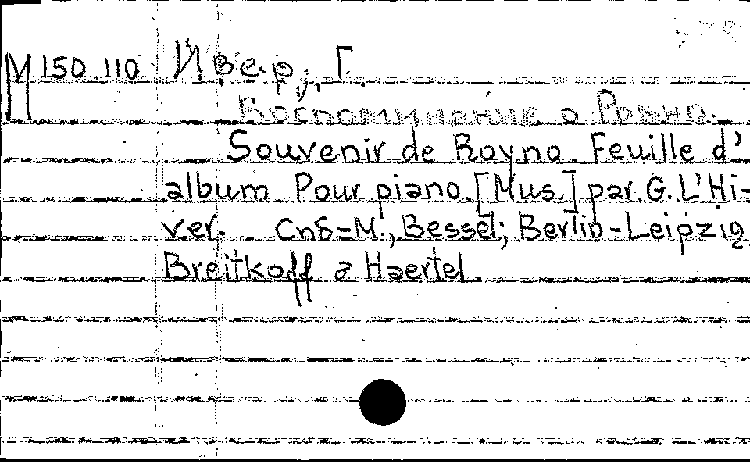 М 150 110 Ивер, Г.
Воспоминание о Ровно.
Souvenir de Rovno Feuille d'
album Pour piano [Mus.] par G. L'Hi-
ver. Спб-М., Bessel; Berlin-Leipzig
Breitkoff a Haertel